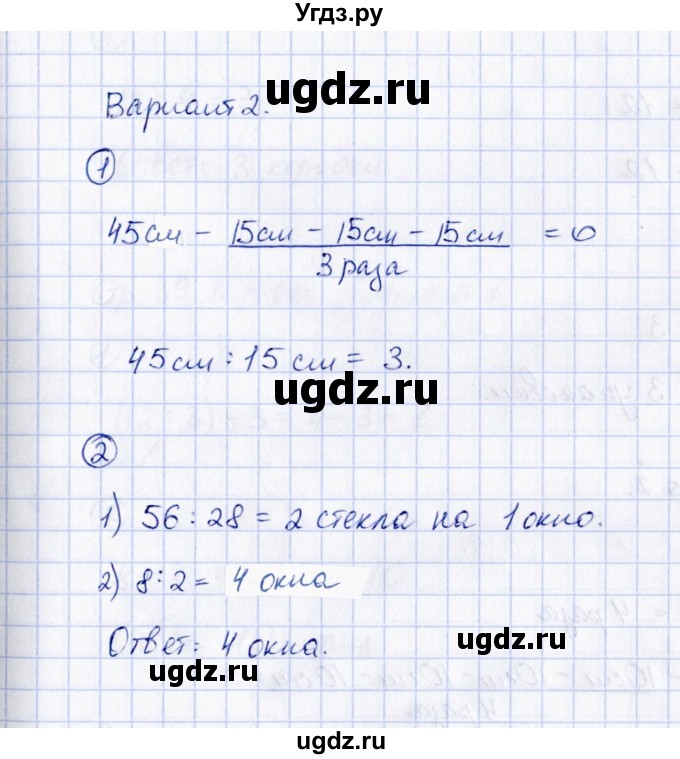 Угдз.ру
ugdz.ru
Вариант 2.
1
45см - 15см - 15см - 15см = 0
3 раза
ugdz.ru
45см : 15см = 3.
ugdz.ru
2
1) 56 : 28 = 2 стекла на 1 окно.
2) 8 : 2 = 4 окна
ugdz.ru
Ответ: 4 окна.
ugdz.ru
ugdz.ru